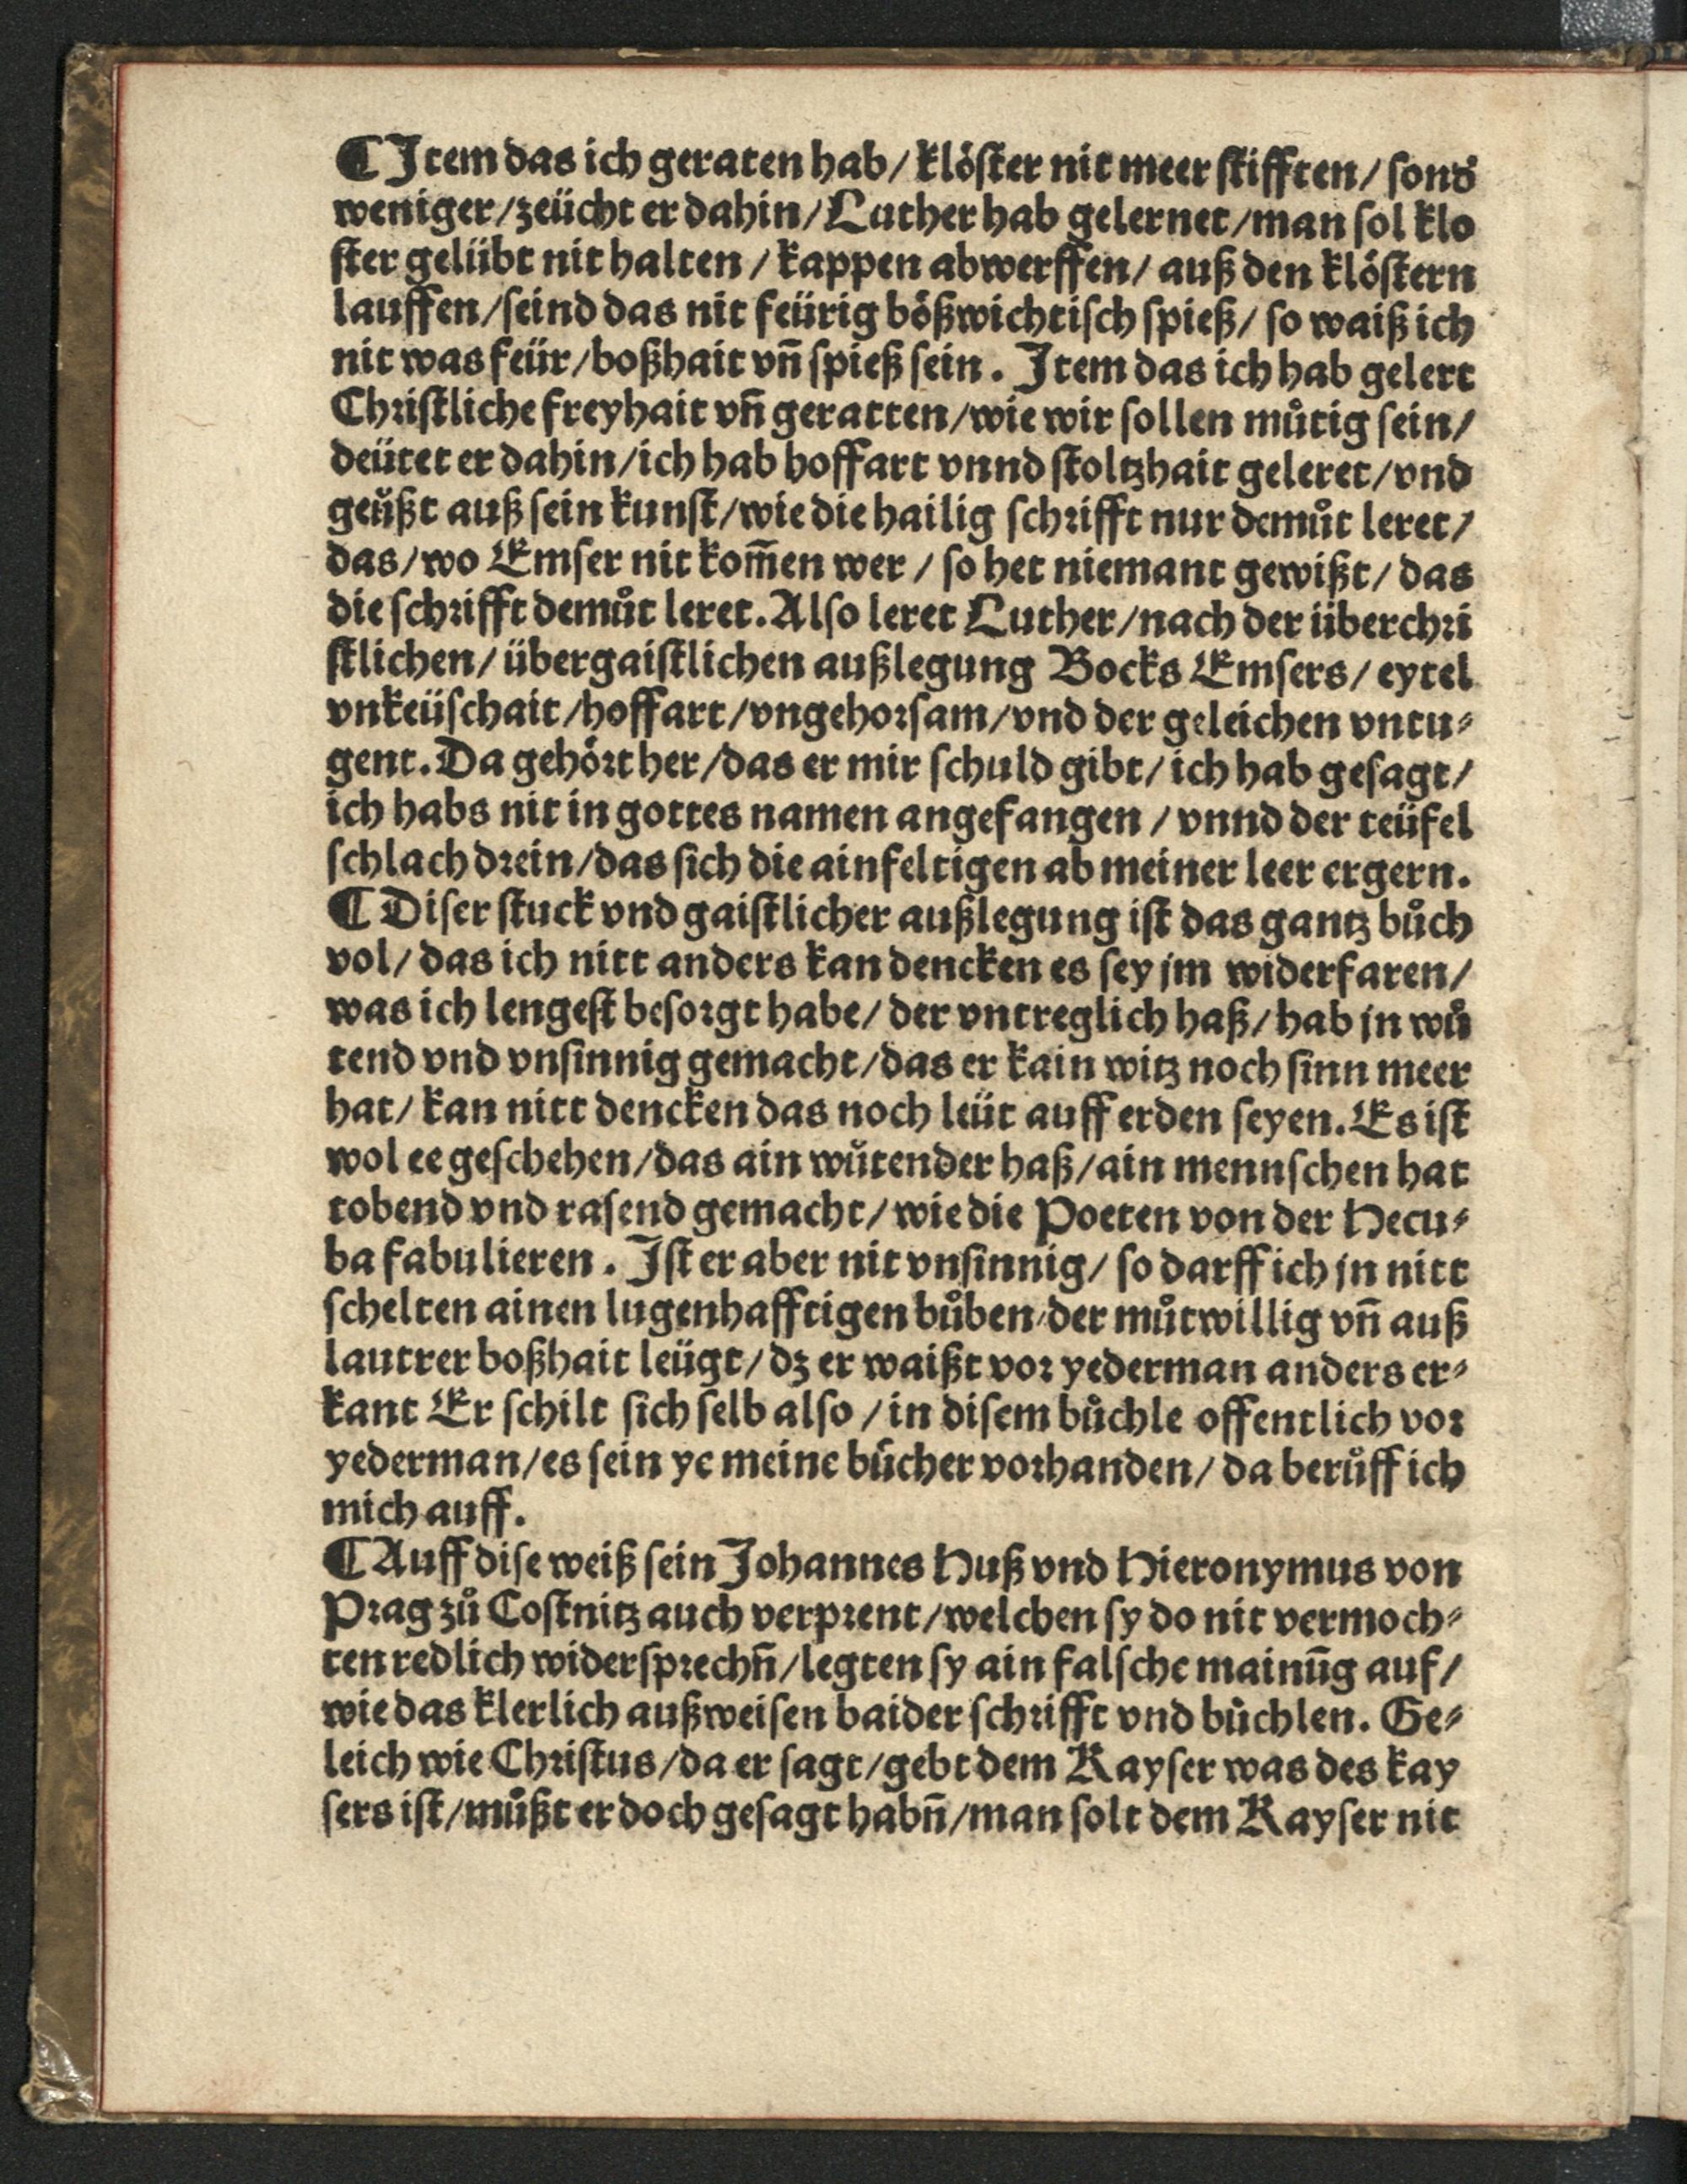 ¶ Item das ich geraten hab/ klöſter nit meer ſtifften/ ſond̕
weniger/zeücht er dahin/Luther hab gelernet/man ſol klo
ſter gelübt nit halten / kappen abwerffen/ auß den klöſtern
lauffen/ſeind das nit feürig bößwichtiſch ſpieß/ ſo waiß ich
nit was feür/boßhait vn̄ ſpieß ſein. Item das ich hab gelert
Chꝛiſtliche freyhait vn̄ geratten/wie wir ſollen můtig ſein/
deütet er dahin/ich hab hoffart vnnd ſtoltzhait geleret/vnd
geüßt auß ſein kunſt/wie die hailig ſchꝛifft nur demůt leret/
das/wo Emſer nit kom̄en wer / ſo het niemant gewißt/ das
die ſchꝛifft demůt leret. Alſo leret Luther/nach der überchꝛi
ſtlichen/ übergaiſtlichen außlegung Bocks Emſers/ eytel
vnkeüſchait/hoffart/vngehoꝛſam/vnd der geleichen vntu⸗
gent. Da gehöꝛt her/das er mir ſchuld gibt/ ich hab geſagt/
ich habs nit in gottes namen angefangen / vnnd der teüfel
ſchlach dꝛein/das ſich die ainfeltigen ab meiner leer ergern.
¶ Diſer ſtuck vnd gaiſtlicher außlegung iſt das gantz bůch
vol/ das ich nitt anders kan dencken es ſey jm widerfaren/
was ich lengeſt beſoꝛgt habe/ der vntreglich haß/ hab jn wů
tend vnd vnſinnig gemacht/das er kain witz noch ſinn meer
hat/ kan nitt dencken das noch leüt auff erden ſeyen. Es iſt
wol ee geſchehen/das ain wůtender haß/ain mennſchen hat
tobend vnd raſend gemacht/ wie die Poeten von der Hecu⸗
ba fabulieren. Iſt er aber nit vnſinnig/ ſo darff ich jn nitt
ſchelten ainen lugenhafftigen bůben/der můtwillig vn̄ auß
lautrer boßhait leügt/ dz er waißt voꝛ yederman anders er⸗
kant Er ſchilt ſich ſelb alſo / in diſem bůchle offentlich voꝛ
yederman/es ſein ye meine bücher voꝛhanden/ da berůff ich
mich auff.
¶ Auff diſe weiß ſein Johannes Huß vnd Hieronymus von
Pꝛag zů Coſtnitz auch verpꝛent/welchen ſy do nit vermoch⸗
ten redlich widerſpꝛechn̄/legten ſy ain falſche mainūg auf/
wie das klerlich außweiſen baider ſchꝛifft vnd bůchlen. Ge⸗
leich wie Chꝛiſtus/da er ſagt/gebt dem Kayſer was des kay
ſers iſt/můßt er doch geſagt habn̄/man ſolt dem Kayſer nit